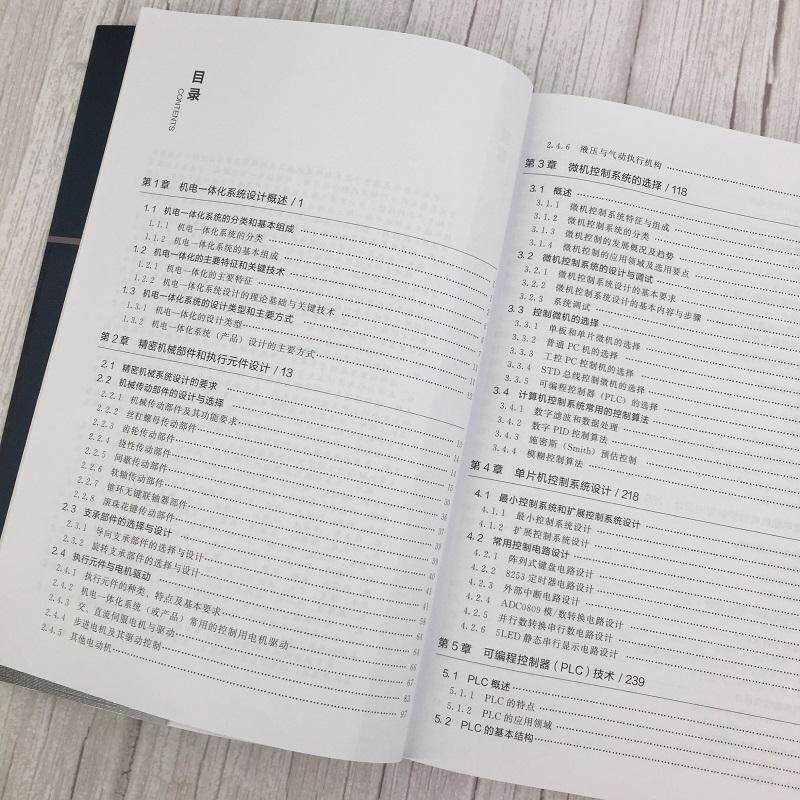 目录
CONTENTS
第1章 机电一体化系统设计概述 / 1
1.1 机电一体化系统的分类和基本组成
1.1.1 机电一体化系统的分类
1.1.2 机电一体化系统的基本组成
1.2 机电一体化的主要特征和关键技术
1.2.1 机电一体化的主要特征
1.2.2 机电一体化系统设计的理论基础与关键技术
1.3 机电一体化系统的设计类型和主要方式
1.3.1 机电一体化的设计类型
1.3.2 机电一体化系统（产品）设计的主要方式
第2章 精密机械部件和执行元件设计 / 13
2.1 精密机械系统设计的要求
2.2 机械传动部件的设计与选择
2.2.1 机械传动部件及其功能要求
2.2.2 丝杠螺母传动部件
2.2.3 齿轮传动部件
2.2.4 挠性传动部件
2.2.5 间歇传动部件
2.2.6 软轴传动部件
2.2.7 锥环无键联轴器部件
2.2.8 滚珠花键传动部件
2.3 支承部件的选择与设计
2.3.1 导向支承部件的选择与设计
2.3.2 旋转支承部件的选择与设计
2.4 执行元件与电机驱动
2.4.1 执行元件的种类、特点及基本要求
2.4.2 机电一体化系统（或产品）常用的控制用电机驱动
2.4.3 交、直流伺服电机与驱动
2.4.4 步进电机及其驱动控制 83
2.4.5 其他电动机 97
2.4.6 液压与气动执行机构
第3章 微机控制系统的选择 / 118
3.1 概述
3.1.1 微机控制系统特征与组成
3.1.2 微机控制系统的分类
3.1.3 微机控制的发展概况及趋势
3.1.4 微机控制的应用领域及选用要点
3.2 微机控制系统的设计与调试
3.2.1 微机控制系统设计的基本要求
3.2.2 微机控制系统设计的基本内容与步骤
3.2.3 系统调试
3.3 控制微机的选择
3.3.1 单板和单片微机的选择
3.3.2 普通PC机的选择
3.3.3 工控PC控制机的选择
3.3.4 STD总线控制微机的选择
3.3.5 可编程控制器（PLC）的选择
3.4 计算机控制系统常用的控制算法
3.4.1 数字滤波和数据处理
3.4.2 数字PID控制算法
3.4.3 施密斯（Smith）预估控制
3.4.4 模糊控制算法
第4章 单片机控制系统设计 / 218
4.1 最小控制系统和扩展控制系统设计
4.1.1 最小控制系统设计
4.1.2 扩展控制系统设计
4.2 常用控制电路设计
4.2.1 阵列式键盘电路设计
4.2.2 8253定时器电路设计
4.2.3 外部中断电路设计
4.2.4 ADC0809模/数转换电路设计
4.2.5 并行数转换串行数电路设计
4.2.6 5LED静态串行显示电路设计
第5章 可编程控制器（PLC）技术 / 239
5.1 PLC概述
5.1.1 PLC的特点
5.1.2 PLC的应用领域
5.2 PLC的基本结构